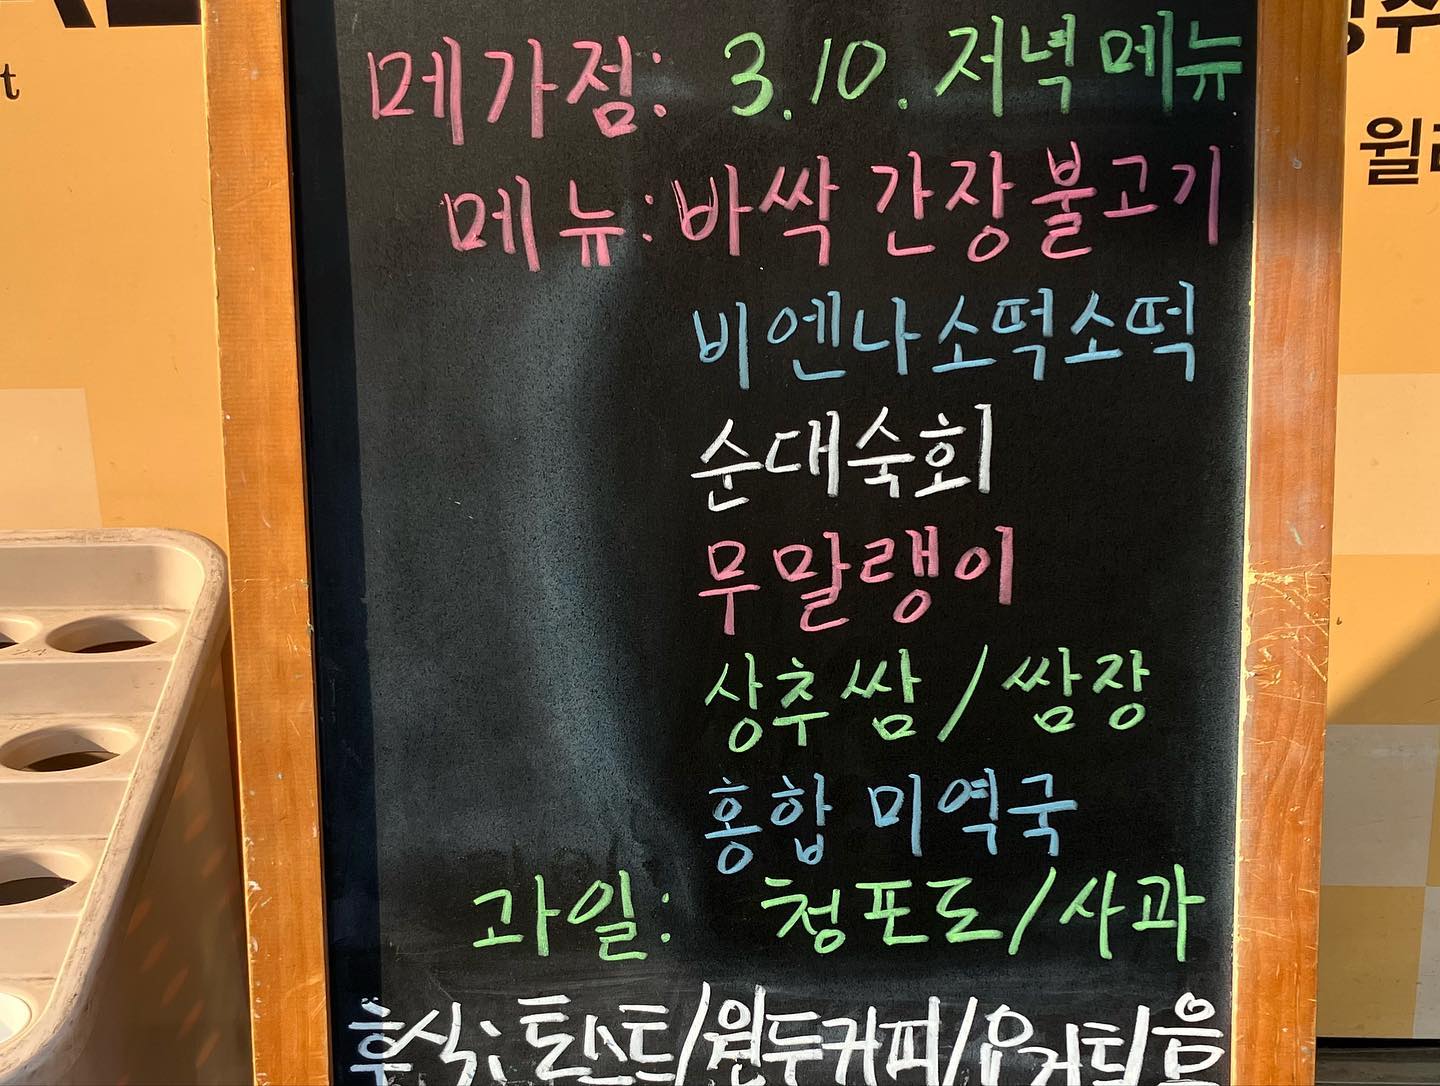 t
메가점: 3.10. 저녁 메뉴
메뉴: 바싹 간장불고기
비엔나소떡소떡
순대숙회
무말랭이
상추쌈/쌈장
홍합 미역국
과일: 청포도/사과
후식: 토스트/원두커피/요거트/음